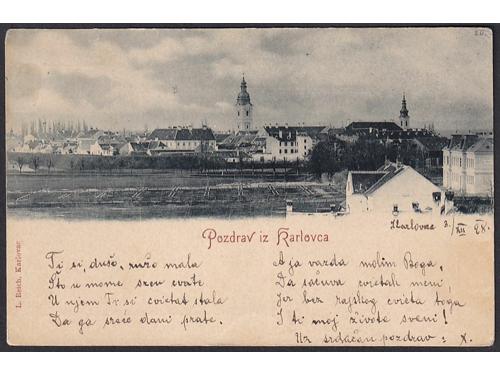 20.
Pozdrav iz Karlovca
Karlovac 3/XII 98.
L. Reich, Karlovac
Ti si, dušo, ružo mala
Što u mome srcu cvate
U njem Ti si cvietat stala
Da ga sreće dani prate.
A ja vazda molim Boga,
Da sačuva cvietak meni
Jer bez rajskog cvieta toga
I ti moj živote sveni!
Uz srdačan pozdrav: X.